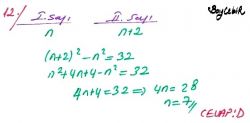 12.) I. Sayı II. Sayı
n n+2
(n+2)² - n² = 32
n² + 4n + 4 - n² = 32
4n + 4 = 32 ⇒ 4n = 28
n = 7
CEVAP: D